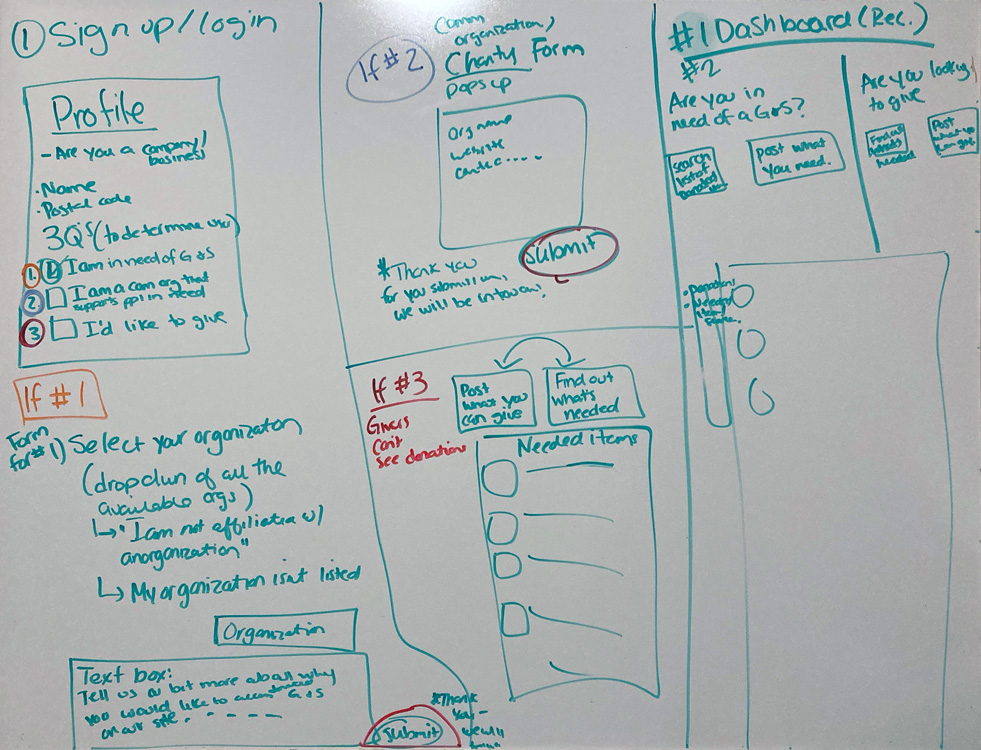 ① Sign up/login
Profile
- Are you a company/
business
• Name
• Postal code
3Q's (to determine user)
1. I am in need of G&S
2. I am a com org that
supports ppl in need
3 I'd like to give
If #1
Form
for #1) Select your organization
(dropdown of all the
available args)
↳ "I am not affiliated w/
an organization"
↳ My organization isn't listed
Organization
Text box:
Tell us a bit more about why
you would like to access G&S
on our site. - - - - -
Submit
*Thank
you -
we will
If #2
(Comm
organization)
Charity Form
pops up
Org name
website
contac....
Submit
*Thank you
for you submission,
we will be in touch!
If #3
Givers
can't
see donations
Post
what you
can give
Find out
what's
needed
Needed items
#1 Dashboard (Rec.)
#2
Are you in
need of a G&S?
search
list of
donated
Post what
you need.
Are you looking
to give
Find out
what's
needed
Post
what you
can give
• Donations
• Needed
items